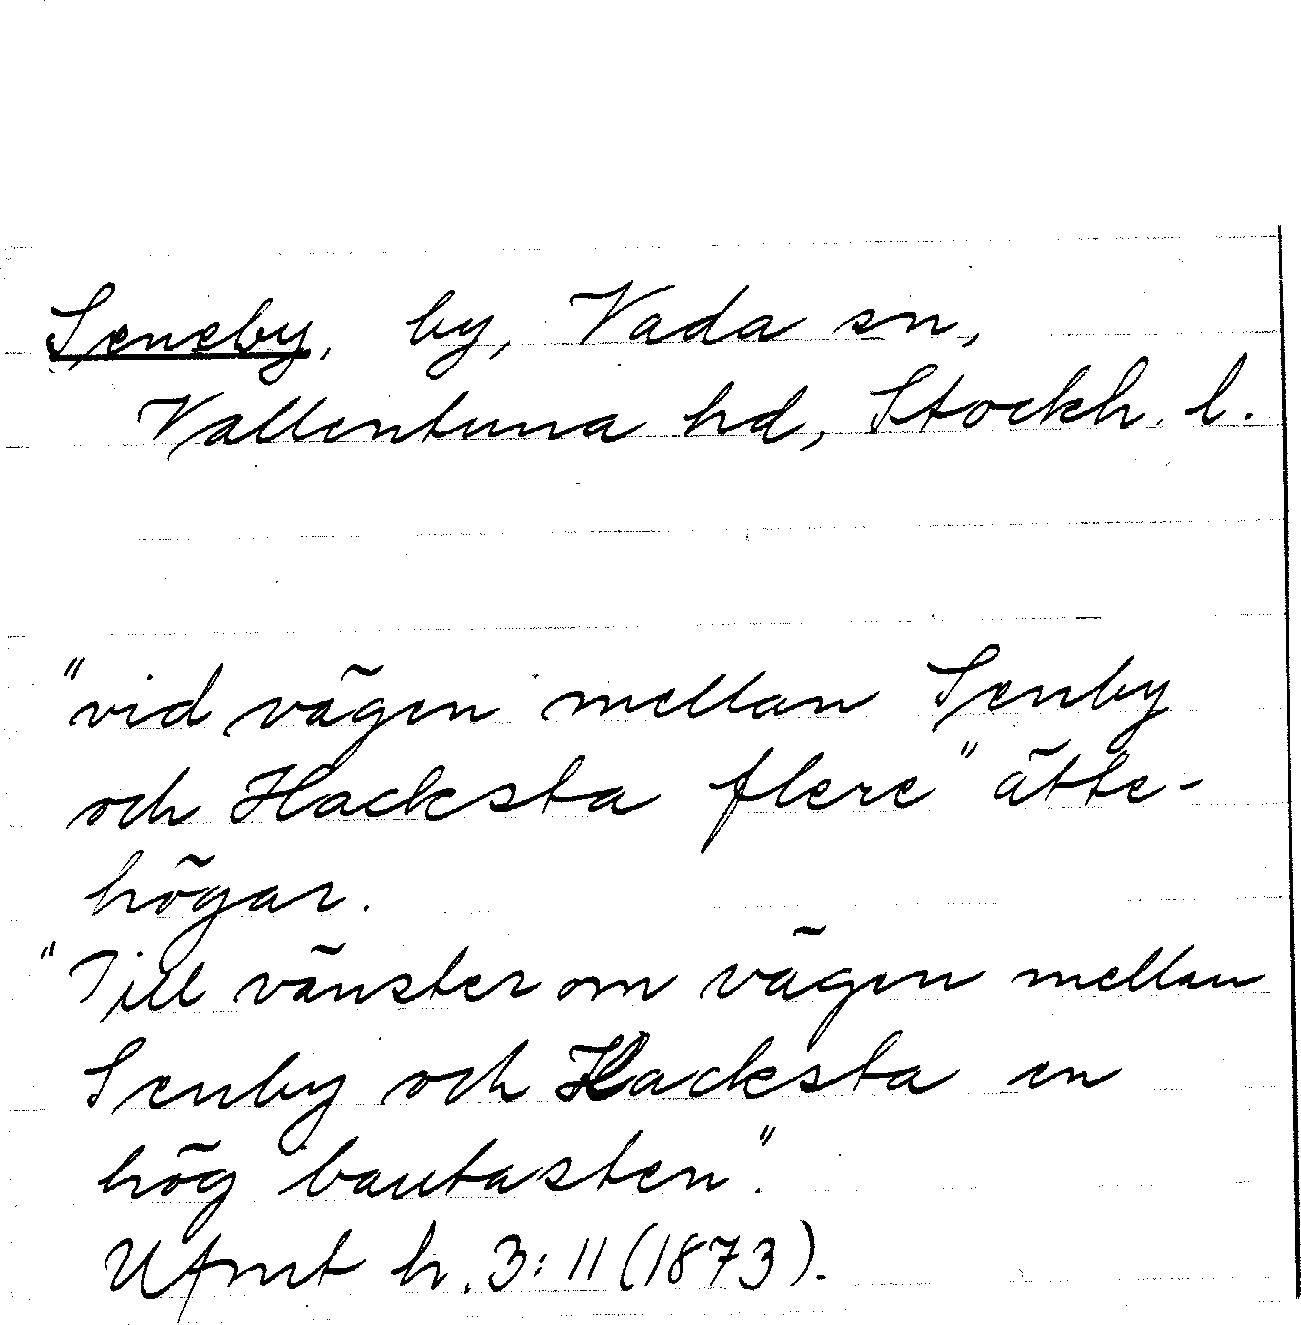 Seneby, by, Vada sn,
Vallentuna hd, Stockh. l.
"vid vägen mellan Senby
och Hacksta flere" ätte-
högar.
"Till vänster om vägen mellan
Senby och Hacksta en
hög bautasten".
Ufmt h. 3: 11 (1873).